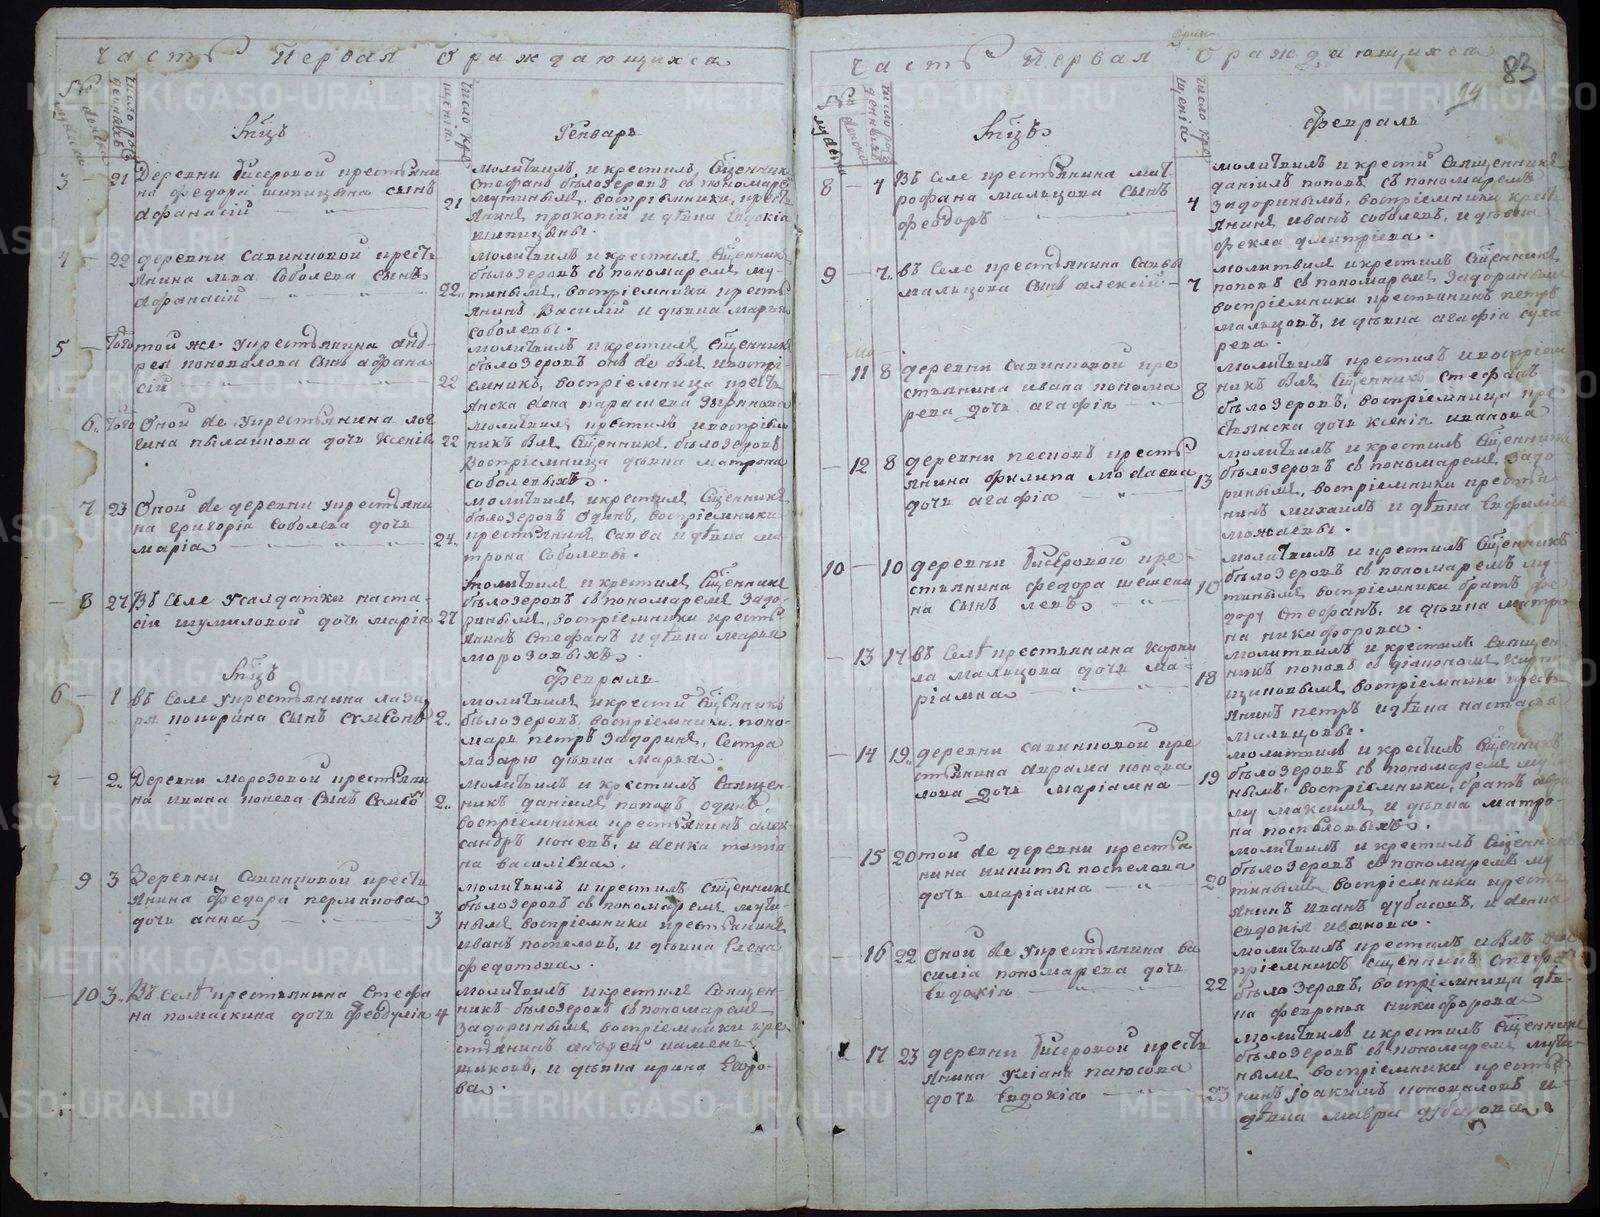 Часть Первая О раждающихся
Мѣсяцъ
Генварь
3 - 21 Деревни Бисеровой крестьяни
на федора шипицына сынъ
Афанасій
21
молитвилъ и крестилъ Сщенникъ
Стефанъ бѣлозеровъ съ пономаремъ
мутинымъ, воспріемники, крестья
янинъ прокопій и дѣвка Евдокіа
шипицыны.
4 - 22 деревни Савинновой кресть
янина льва Соболева сынъ
Афанасій
22
молитвилъ и крестилъ Сщенникъ
бѣлозеровъ съ пономаремъ му-
тинымъ, воспріемники кресть
янинъ Василій и дѣвка марья
соболевы.
5 - Того той же у крестьянина анд-
рея коновалова сынъ афана
сій
22
молитвилъ и крестилъ Сщенникъ
бѣлозеровъ онъ же былъ и воспрі-
емникъ, воспріемница кресть
янска жена
6 Того Оной же у крестьянина
дочь Ксеніа
22
молитвилъ крестилъ и воспріем
никъ былъ Сщенникъ бѣлозеровъ
воспріемница дѣвка матрона
соболевыхъ.
7 23 Оной же деревни у крестьяни
на григоріа Соболева дочь
маріа
24
молитвилъ и крестилъ Сщенникъ
бѣлозеровъ одинъ, воспріемники
крестьянинъ Савва и дѣвка ма-
трона Соболевы.
- 8 27 Въ селе у салдатки наста-
сіи шумиловой дочь маріа
27
молитвилъ и крестилъ Сщенникъ
бѣлозеровъ съ пономаремъ Задо-
ринымъ, воспріемники кресть
янинъ Стефанъ и дѣвка марья
морозовыхъ.
Мѣсяцъ
Февраль
6 - 1 въ селе у крестьянина лаза
ря сынъ симеонъ
2
молитвилъ и крестилъ Сщенникъ
бѣлозеровъ, воспріемники поно-
марь петръ Задоринъ, сестра
лазарю дѣвка марва.
7 - 2 Деревни морозовой крестьяни
на ивана конева сынъ
2
молитвилъ и крестилъ Священ-
никъ даніилъ поповъ одинъ,
воспріемники крестьянинъ алек
сандръ коневъ, и женка татіа
на василіева.
- 9 3 Деревни Савинновой кресть
янина Федора
дочь анна
3
молитвилъ и крестилъ Сщенникъ
бѣлозеровъ съ пономаремъ мути-
нымъ воспріемники крестьянинъ
иванъ поспеловъ, и дѣвка Елена
федотова.
- 10 3 Въ Селѣ крестьянина Стефа
на помаскина дочь Феодуліа
4
молитвилъ и крестилъ Священ-
никъ бѣлозеровъ съ пономаремъ
Задоринымъ воспріемники кре-
стьянинъ андрей
и дѣвка ирина Егоро-
ва.
Часть Первая О раждающихся
83
Мѣсяцъ
Февраль
8 - 4 Въ селе крестьянина мит
рофана мальцова сынъ
феодоръ
4
молитвилъ и крестилъ Священникъ
даніилъ поповъ съ пономаремъ
задоринымъ, воспріемники крест
янинъ иванъ соболевъ, и дѣвка
фекла дмитріева.
9 - 7 въ Селе крестьянина Саввы
мальцова сынъ алексій
7
молитвилъ и крестилъ Сщенникъ
поповъ съ пономаремъ Задоринымъ
воспріемники крестьянинъ петръ
мальцовъ, и дѣвка агафіа суха
рева.
- 11 8 деревни савинновой кре
стьянина ивана понома
рева дочь агафіа
8
молитвилъ крестилъ и воспріем
никъ былъ Сщенникъ Стефанъ
бѣлозеровъ, воспріемница кре
стьянска дочь Ксеніа иванова
- 12 8 деревни песковъ кресть
янина филипа можаева
дочь агафіа
13
молитвилъ и крестилъ Сщенникъ
бѣлозеровъ съ пономаремъ Задо
ринымъ, воспріемники крестья
нинъ михаилъ и дѣвка Евфиміа
можаевы.
10 - 10 деревни Бисеровой кре-
стьянина федора шешени
на Сынъ левъ
10
молитвилъ и крестилъ Сщенникъ
бѣлозеровъ съ пономаремъ му-
тинымъ, воспріемники братъ фе
дору Стефанъ, и дѣвка матро
на никифорова.
- 13 17 въ Селѣ крестьянина Корни
ла мальцова дочь ма-
ріамна
18
молитвилъ и крестилъ Священ
никъ поповъ съ діакономъ
воспріемники кресть
янинъ петръ и дѣвка настасья
мальцовы.
- 14 19 деревни савинновой кре
стьянина аврама
дочь маріамна
19
молитвилъ и крестилъ Сщенникъ
бѣлозеровъ съ пономаремъ мути
нымъ, воспріемники, братъ авра
му максимъ и дѣвка матро-
на поспеловыхъ.
- 15 20 той же деревни крестья
нина никиты поспелова
дочь маріамна
20
молитвилъ и крестилъ Сщенникъ
бѣлозеровъ съ пономаремъ му
тинымъ воспріемники кресть
янинъ иванъ дубасовъ, и женка
евдокіа иванова.
- 16 22 Оной же у крестьянина ва
силіа пономарева дочь
Евдокіа
22
молитвилъ крестилъ и былъ вос
пріемникъ сщенникъ Стефанъ
бѣлозеровъ, воспріемница дѣв-
ка февронья никифорова
17 23 деревни Бисеровой кресть
янина уліана патосова
дочь Евдокіа
23
молитвилъ и крестилъ Сщенникъ
бѣлозеровъ съ пономаремъ мути-
нымъ воспріемники крестья
нинъ Іоакимъ коноваловъ и
дѣвка мавра дубасова